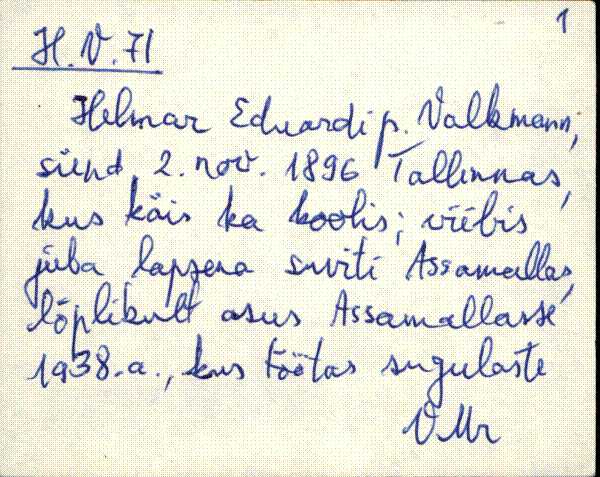 1
H.V.71
Helmar Eduardi p. Valkmann,
sünd. 2. nov. 1896 Tallinnas,
kus käis ka koolis; viibis
juba lapsena suviti Assamallas,
lõplikult asus Assamallasse
1938.a., kus töötas sugulaste
VMr